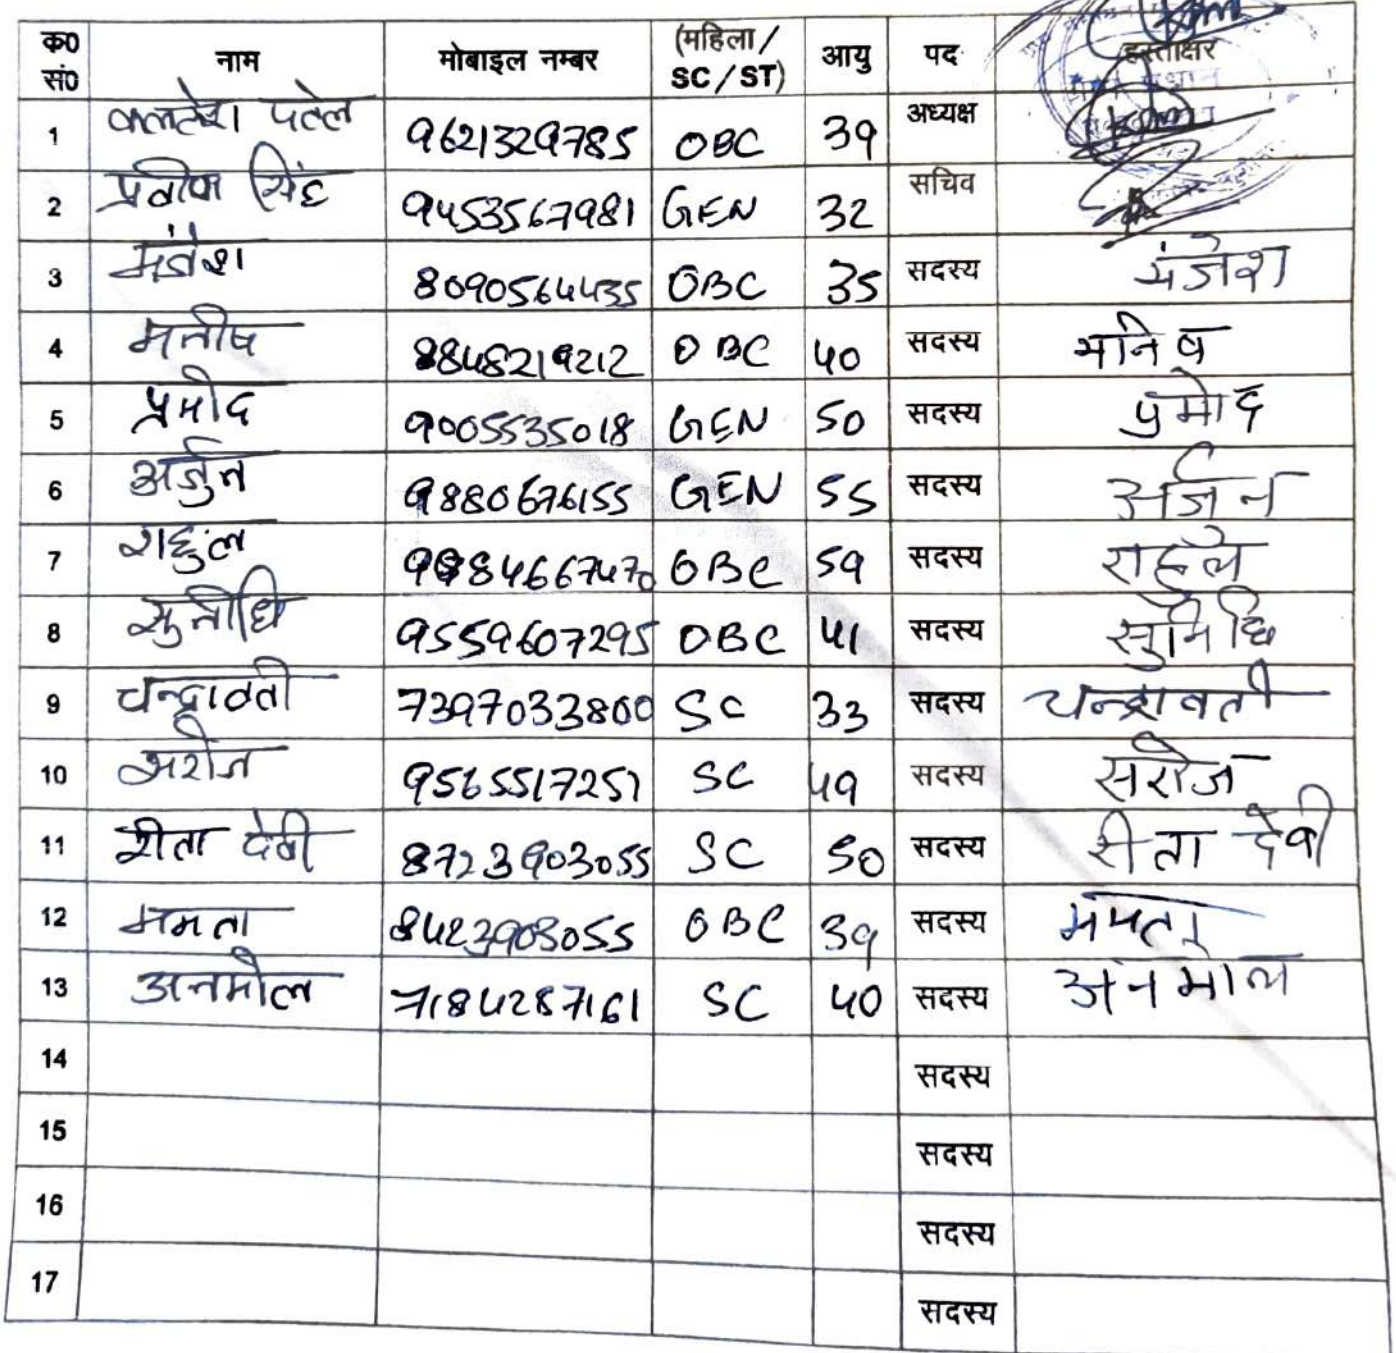 क०सं० नाम मोबाइल नम्बर (महिला / SC / ST) आयु पद हस्ताक्षर
1 पटेल 9621329785 OBC 39 अध्यक्ष
2 सिंह 9453567981 GEN 32 सचिव
3 मंजेश 8090564435 OBC 35 सदस्य मंजेश
4 मनीष 8848219212 OBC 40 सदस्य मनिष
5 प्रमोद 9005535018 GEN 50 सदस्य प्रमोद
6 अर्जुन 9880676155 GEN 55 सदस्य अर्जुन
7 राहुल 9984667470 OBC 59 सदस्य राहुल
8 सुनीधि 9559607295 OBC 41 सदस्य सुनिधि
9 चन्द्रावती 7397033800 SC 33 सदस्य चन्द्रावती
10 सरोज 9565517251 SC 49 सदस्य सरोज
11 रीता देवी 8723903055 SC 50 सदस्य रीता देवी
12 ममता 8423903055 OBC 39 सदस्य ममता
13 अनमोल 7184287161 SC 40 सदस्य अनमोल
14 सदस्य
15 सदस्य
16 सदस्य
17 सदस्य